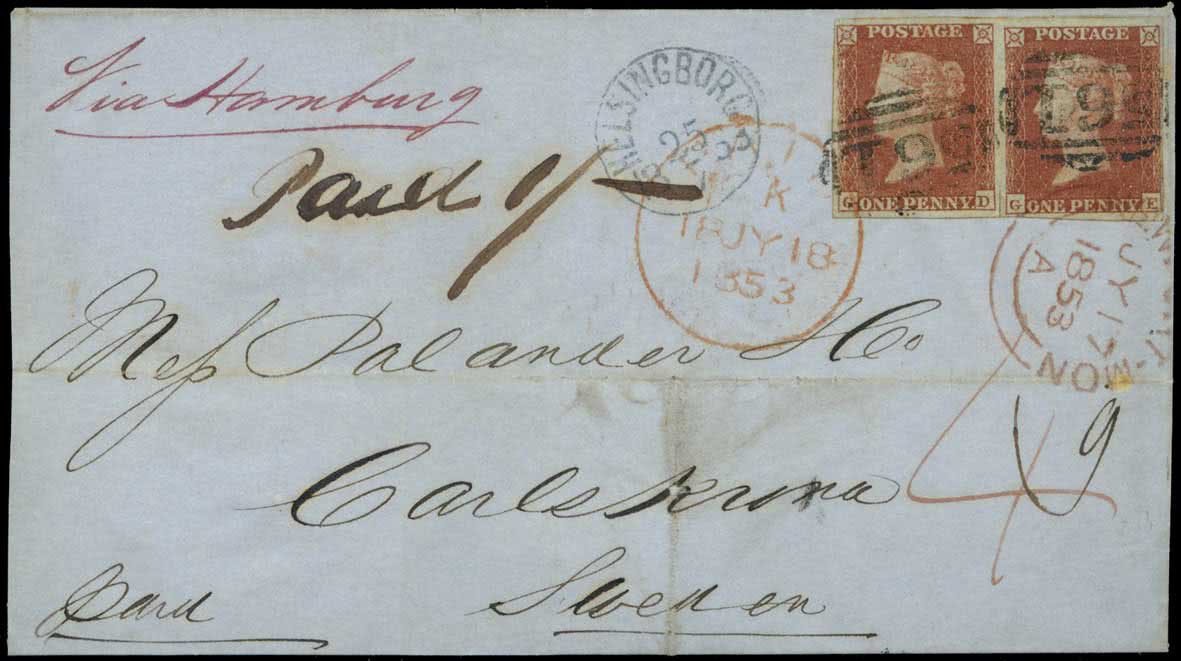 Via Hamburg
Paid 1/-
HELSINGBORG
25
POSTAGE
G ONE PENNY D
POSTAGE
G ONE PENNY E
K
18JY18
1853
JY 17
1853
A
MON
Mess Palander & Co
4
9
Carlskrona
Paid
Sweden